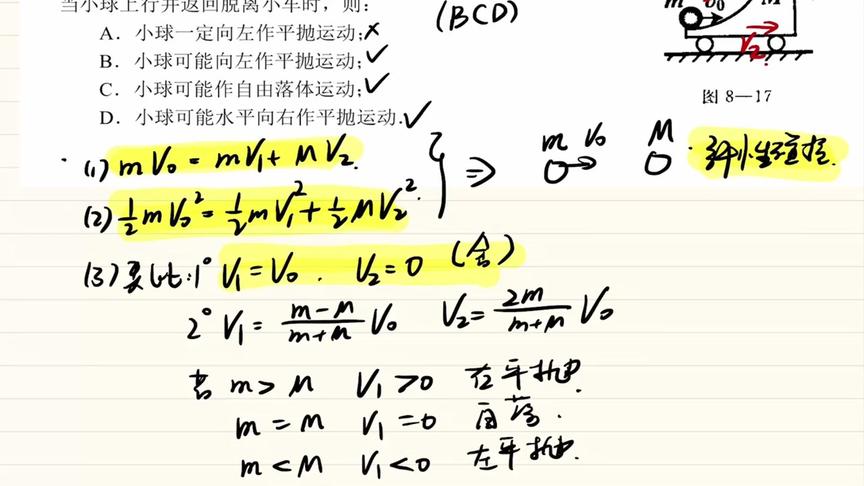 当小球上行并返回脱离小车时，则：
(BCD)
A．小球一定向左作平抛运动;✗
B．小球可能向左作平抛运动;✓
C．小球可能作自由落体运动;✓
D．小球可能水平向右作平抛运动.✓
m v₀ M
V₂
图 8—17
(1) mV₀ = mV₁ + MV₂
(2) ½mV₀² = ½mV₁² + ½MV₂²
} ⇒ m V₀ M
(3) 1° V₁ = V₀ . V₂ = 0 (舍)
2° V₁ = (m−M)/(m+M) V₀ V₂ = 2m/(m+M) V₀
若 m > M V₁ > 0 右平抛
m = M V₁ = 0 自落.
m < M V₁ < 0 左平抛.